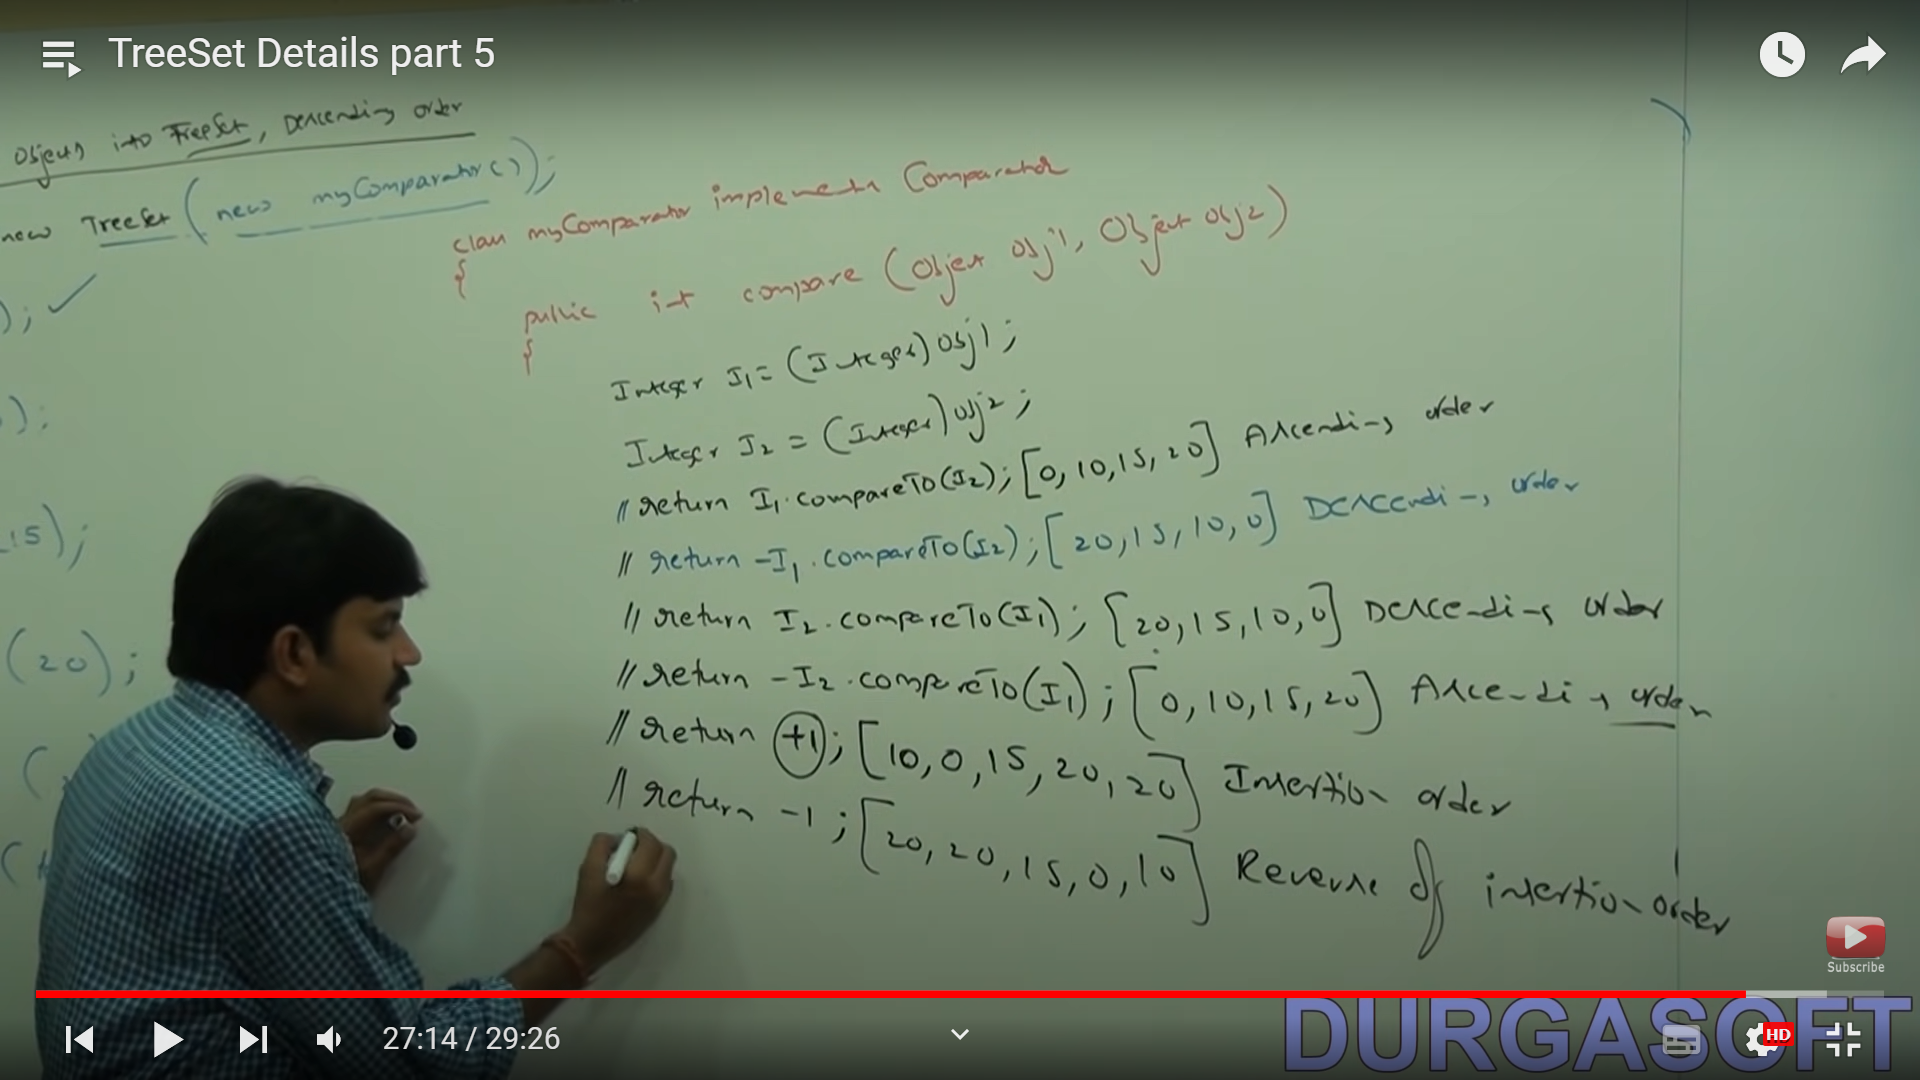 TreeSet Details part 5
Objects into TreeSet, Descending order
new TreeSet(new myComparator());
class myComparator implements Comparator
{
public int compare (Object obj1, Object obj2)
{
);
Integer I1 = (Integer) obj1;
);
Integer I2 = (Integer) obj2;
// return I1.compareTo(I2); [0, 10, 15, 20] Ascending order
15);
// return -I1.compareTo(I2); [20, 15, 10, 0] Descending order
// return I2.compareTo(I1); [20, 15, 10, 0] Descending order
(20);
// return -I2.compareTo(I1); [0, 10, 15, 20] Ascending order
// return +1; [10, 0, 15, 20, 20] Insertion order
(
// return -1; [20, 20, 15, 0, 10] Reverse of insertion order
(
Subscribe
27:14 / 29:26
HD
DURGASOFT